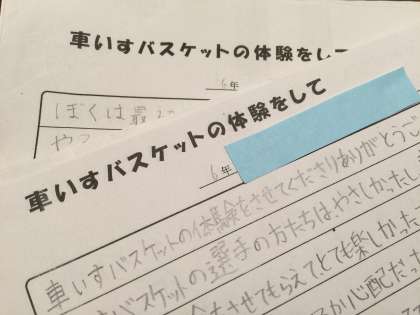 車いすバスケットの体験をして
6年
ぼくは最
やっ
車いすバスケットの体験をして
6年
車いすバスケットの体験をさせてくださりありがとうご
すバスケットの選手の方たちは、やさしかったし
させてもらえてとても楽しかった
心配だ